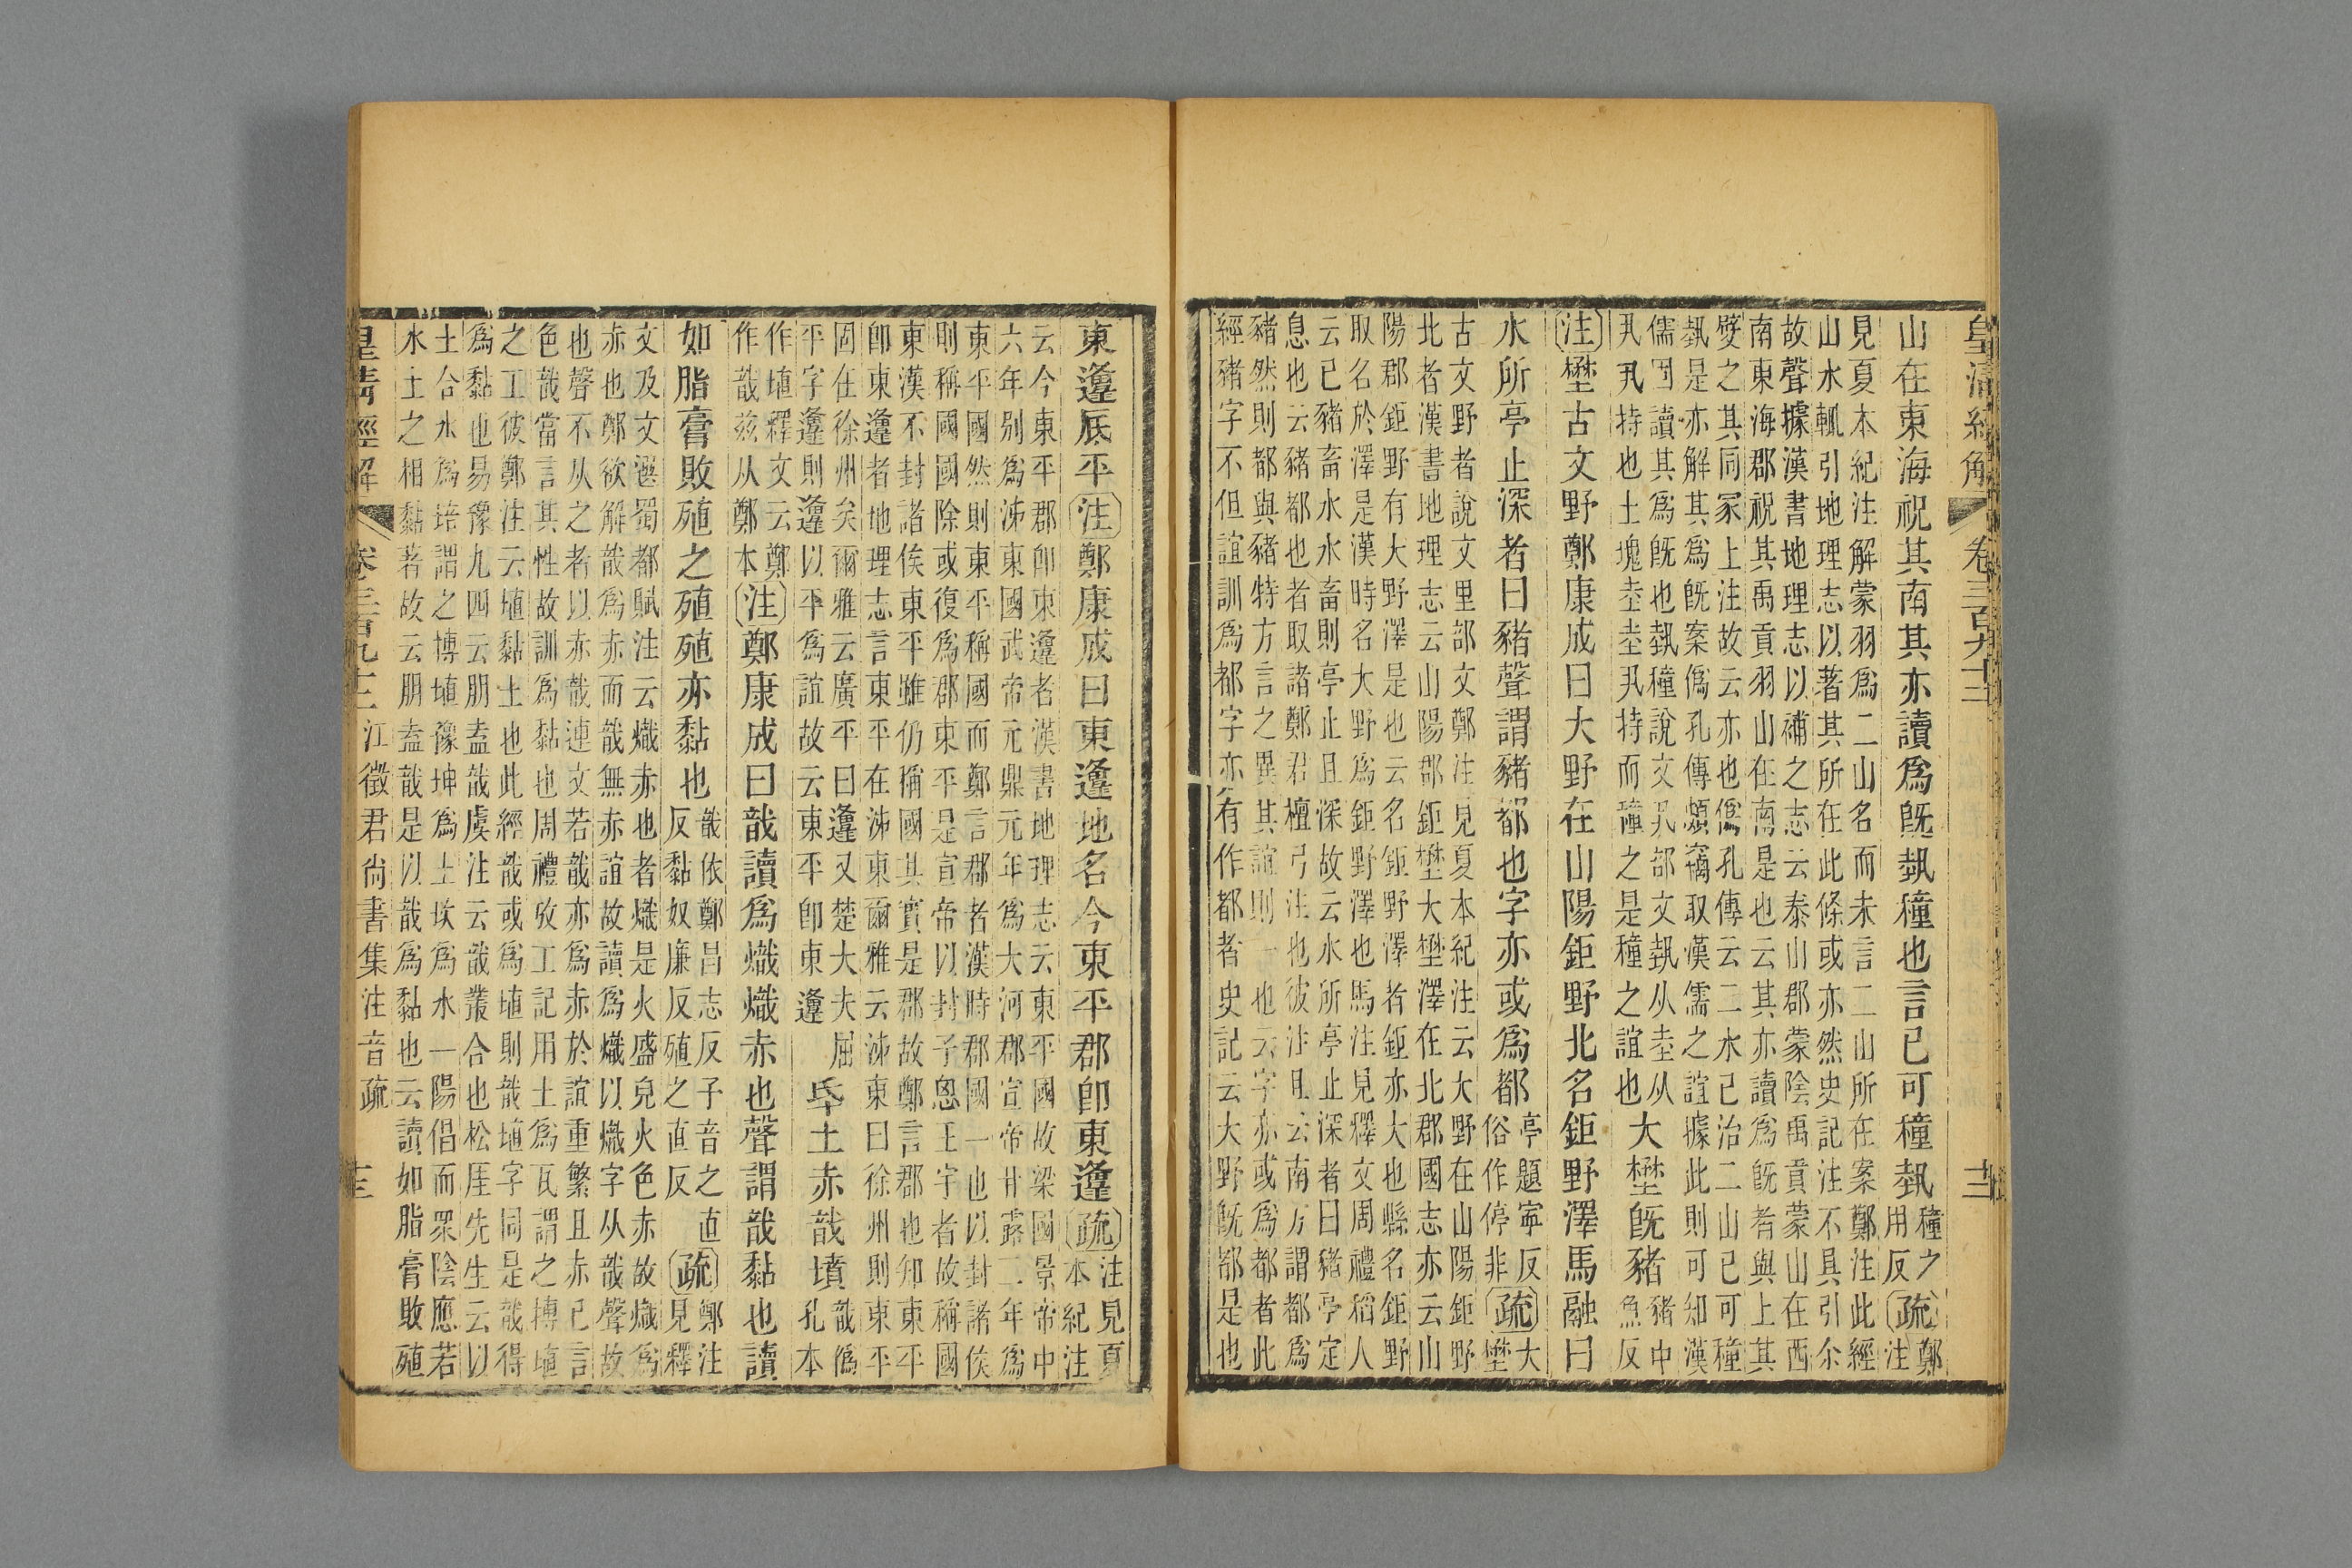 皇清經解 卷三百九十二 十二
山在東海祝其南其亦讀爲旣蓺種也言已可種蓺種之用反疏鄭注
見夏本紀注解蒙羽爲二山名而未言二山所在案鄭注此經
山水輒引地理志以著其所在此條或亦然史記注不具引尒
故聲據漢書地理志以補之志云泰山郡蒙陰禹貢蒙山在西
南東海郡祝其禹貢羽山在南是也云其亦讀爲旣者與上其
嬖之其同冡上注故云亦也僞孔傳云二水已治二山已可種
蓺是亦解其爲旣案僞孔傳頗竊取漢儒之誼據此則可知漢
儒固讀其爲旣也蓺種說文丮部文埶从坴从
丮丮持也土塊坴坴丮持而種之是種之誼也大壄旣豬豬中魚反
注壄古文野鄭康成曰大野在山陽鉅野北名鉅野澤馬融曰
水所亭止深者曰豬聲謂豬都也字亦或爲都亭題寧反俗作停非疏大壄
古文野者說文里部文鄭注見夏本紀注云大野在山陽鉅野
北者漢書地理志云山陽郡鉅壄大壄澤在北郡國志亦云山
陽郡鉅野有大野澤是也云名鉅野澤者鉅亦大也縣名鉅野
取名於澤是漢時名大野爲鉅野澤也馬注見釋文周禮稻人
云已豬畜水水畜則亭止且深故云水所亭止深者曰豬亭定
息也云豬都也者取諸鄭君檀弓注也彼注且云南方謂都爲
豬然則都與豬特方言之異其誼則一也云字亦或爲都者此
經豬字不但誼訓爲都字亦有作都者史記云大野旣都是也
東邍厎平注鄭康成曰東邍地名今東平郡卽東邍疏注見夏本紀注
云今東平郡卽東邍者漢書地理志云東平國故梁國景帝中
六年別爲泲東國武帝元鼎元年爲大河郡宣帝甘露二年爲
東平國然則東平稱國而鄭言郡者漢時郡國一也以封諸侯
則稱國國除或復爲郡東平是宣帝以封子恖王宇者故稱國
東漢不封諸侯東平雖仍稱國其實是郡故鄭言郡也知東平
卽東邍者地理志言東平在泲東爾雅云泲東曰徐州則東平
固在徐州矣爾雅云廣平曰邍又楚大夫屈
平字邍則邍以平爲誼故云東平卽東邍氒土赤戠墳戠僞孔本
作埴釋文云鄭
作戠兹从鄭本注鄭康成曰戠讀爲熾熾赤也聲謂戠黏也讀
如脂膏敗殖之殖殖亦黏也戠依鄭昌志反子音之直反黏奴廉反殖之直反疏鄭注見釋
文及文選蜀都賦注云熾赤也者熾是火盛皃火色赤故熾爲
赤也鄭欲解戠爲赤而戠無赤誼故讀爲熾以熾字从戠聲故
也聲不从之者以赤戠連文若戠亦爲赤於誼重繁且赤已言
色戠當言其性故訓爲黏也周禮攷工記用土爲瓦謂之摶埴
之工彼鄭注云埴黏土也此經戠或爲埴則戠埴字同是戠得
爲黏也易豫九四云朋盍戠虞注云戠叢合也松厓先生云以
土合水爲培謂之摶埴豫坤爲土坎爲水一陽倡而眾陰應若
水土之相黏著故云朋盍戠是以戠爲黏也云讀如脂膏敗殖
皇清經解 卷三百九十二 江徵君尚書集注音疏 十三